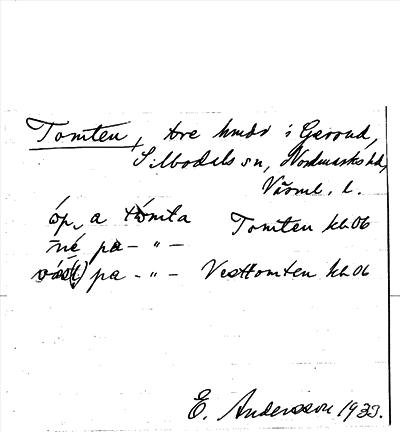 Tomten, tre hmdr i Gersud,
Silbodals sn, Nordmarks hd,
Värml. l.
óp, a tómta Tomten kb 06
né pa - " -
väst) pa - " - Vesttomten kb 06
E. Andersson 1933.